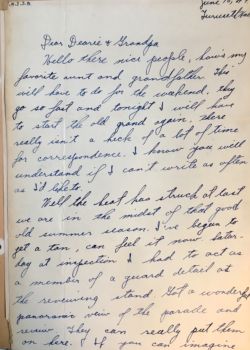 June 10, 19
Dear Dearie & Grandpa
Hello there nice people, how's my
favorite aunt and grandfather. This
will have to do for the weekend, they
go so fast and tonight I will have
to start the old grind again, there
really isn't a heck of a lot of time
for correspondence. I know you well
understand if I can't write as often
as I'd like to.
Well the heat has struck at last
we are in the midst of that good
old summer season. I've begun to
get a tan, can feel it now. Satur-
day at inspection I had to act as
a member of a guard detail at
the reviewing stand. Got a wonderful
panoramic view of the parade and
review. They can really put them
on here. If you can imagine